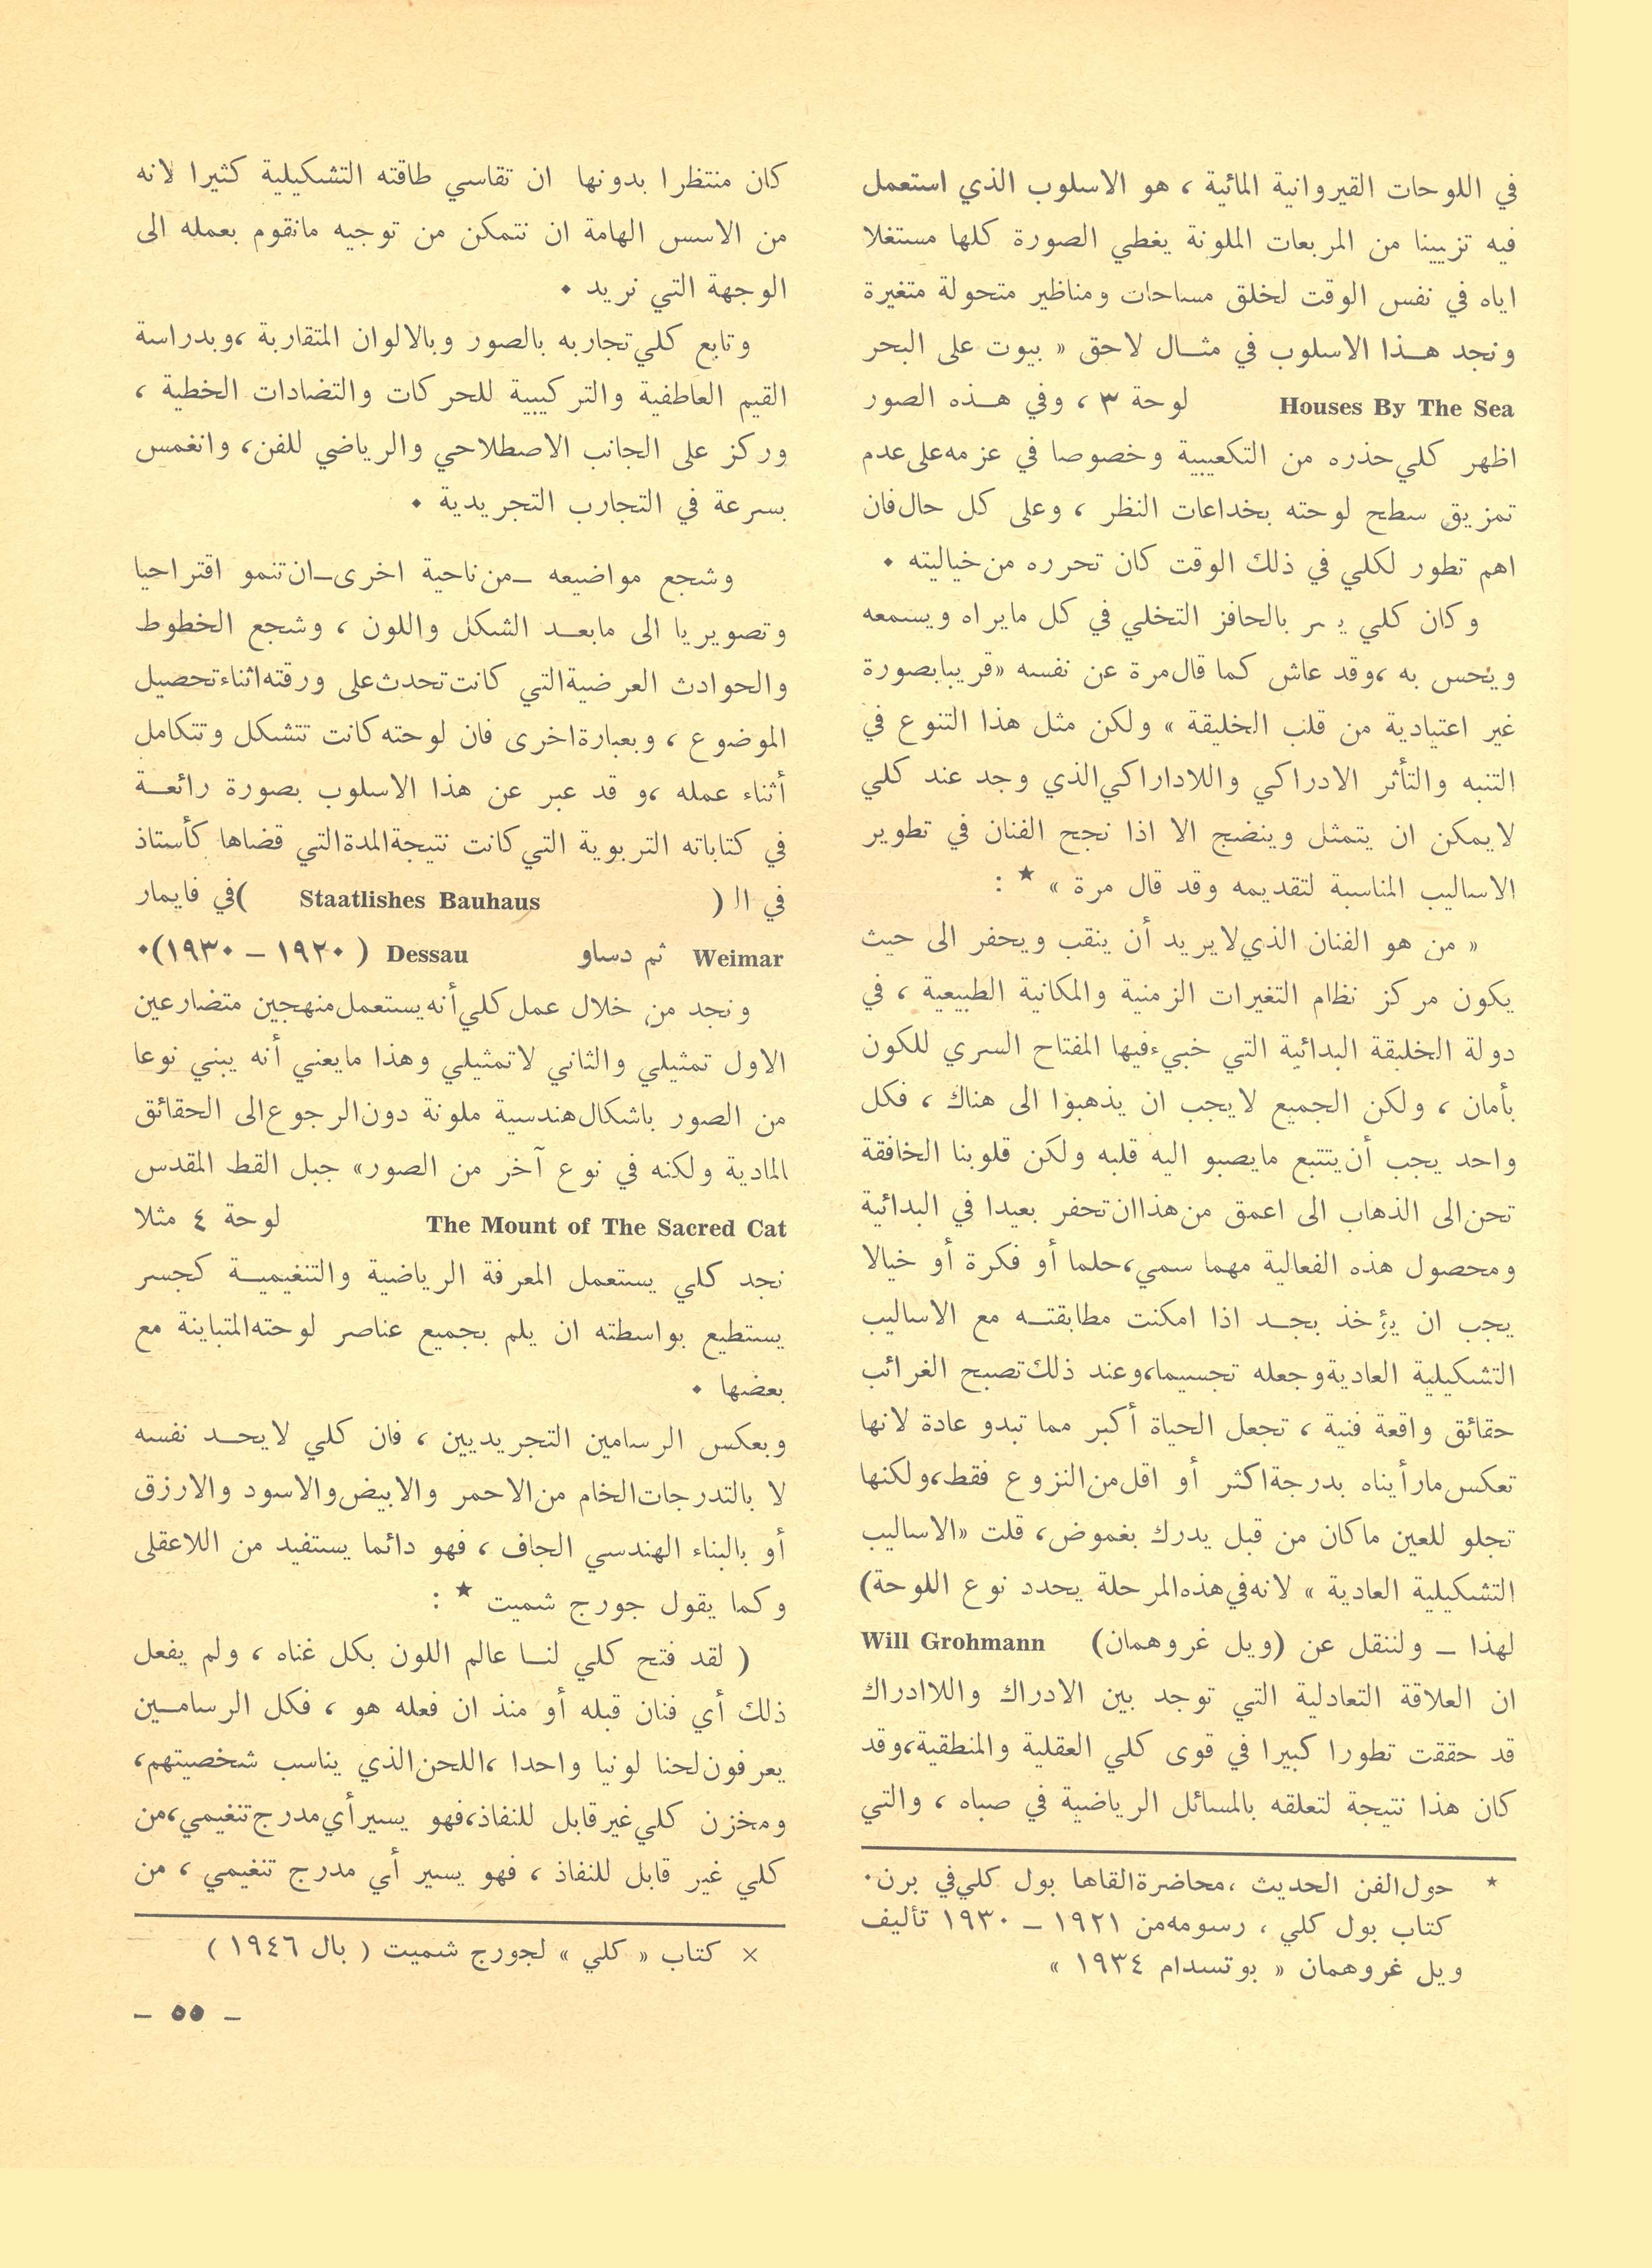 في اللوحات القيروانية المائية ، هو الاسلوب الذي استعمل
فيه تزيينا من المربعات الملونة يغطي الصورة كلها مستغلا
اياه في نفس الوقت لخلق مساحات ومناظير متحولة متغيرة
ونجد هـذا الاسلوب في مثـال لاحق « بيوت على البحر
Houses By The Sea لوحة ٣ ، وفي هـذه الصور
اظهر كلي حذره من التكعيبية وخصوصا في عزمه على عدم
تمزيق سطح لوحته بخداعات النظر ، وعلى كل حال فان
اهم تطور لكلي في ذلك الوقت كان تحرره من خياليته ٠
وكان كلي ير بالحافز التخلي في كل مايراه ويسمعه
ويحس به ،وقد عاش كما قال مرة عن نفسه «قريبا بصورة
غير اعتيادية من قلب الخليقة » ولكن مثل هذا التنوع في
التنبه والتأثر الادراكي واللاداراكي الذي وجد عند كلي
لايمكن ان يتمثل وينضج الا اذا نجح الفنان في تطوير
الاساليب المناسبة لتقديمه وقد قال مرة » ★ :
« من هو الفنان الذي لايريد أن ينقب ويحفر الى حيث
يكون مركز نظام التغيرات الزمنية والمكانية الطبيعية ، في
دولة الخليقة البدائية التي خبيء فيها المفتاح السري للكون
بأمان ، ولكن الجميع لايجب ان يذهبوا الى هناك ، فكل
واحد يجب أن يتتبع مايصبو اليه قلبه ولكن قلوبنا الخافقة
تحن الى الذهاب الى اعمق من هذا ان تحفر بعيدا في البدائية
ومحصول هذه الفعالية مهما سمي، حلما أو فكرة أو خيالا
يجب ان يؤخذ بجـد اذا امكنت مطابقتـه مع الاساليب
التشكيلية العادية وجعله تجسيما، وعند ذلك تصبح الغرائب
حقائق واقعة فنية ، تجعل الحياة أكبر مما تبدو عادة لانها
تعكس مارأيناه بدرجة اكثر أو اقل من النزوع فقط، ولكنها
تجلو للعين ماكان من قبل يدرك بغموض، قلت «الاساليب
التشكيلية العادية » لانه في هذه المرحلة يحدد نوع اللوحة)
لهذا ــ ولننقل عن (ويل غروهمان) Will Grohmann
ان العلاقة التعادلية التي توجد بين الادراك واللاادراك
قد حققت تطورا كبيرا في قوى كلي العقلية والمنطقية، وقد
كان هذا نتيجة لتعلقه بالمسائل الرياضية في صباه ، والتي
★ حول الفن الحديث ، محاضرة القاها بول كلي في برن٠
كتاب بول كلي ، رسومه من ١٩٢١ ــ ١٩٣٠ تأليف
ويل غروهمان « بوتسدام ١٩٣٤ »
كان منتظرا بدونها ان تقاسي طاقته التشكيلية كثيرا لانه
من الاسس الهامة ان نتمكن من توجيه مانقوم بعمله الى
الوجهة التي نريد ٠
وتابع كلي تجاربه بالصور وبالالوان المتقاربة ،وبدراسة
القيم العاطفية والتركيبية للحركات والتضادات الخطية ،
وركز على الجانب الاصطلاحي والرياضي للفن، وانغمس
بسرعة في التجارب التجريدية ٠
وشجع مواضيعه ــ من ناحية اخرى ــ ان تنمو اقتراحيا
وتصويريا الى مابعـد الشكل واللون ، وشجع الخطوط
والحوادث العرضية التي كانت تحدث على ورقته اثناء تحصيل
الموضوع ، وبعبارة اخرى فان لوحته كانت تتشكل وتتكامل
أثناء عمله ،و قد عبر عن هذا الاسلوب بصورة رائعـة
في كتاباته التربوية التي كانت نتيجة المدة التي قضاها كأستاذ
في الـ ( Staatlishes Bauhaus )في فايمار
Weimar ثم دساو Dessau ( ١٩٢٠ ــ ١٩٣٠)٠
ونجد من خلال عمل كلي أنه يستعمل منهجين متضارعين
الاول تمثيلي والثاني لاتمثيلي وهذا مايعني أنه يبني نوعا
من الصور باشكال هندسية ملونة دون الرجوع الى الحقائق
المادية ولكنه في نوع آخر من الصور» جبل القط المقدس
The Mount of The Sacred Cat لوحة ٤ مثلا
نجد كلي يستعمل المعرفة الرياضية والتنغيميـة كجسر
يستطيع بواسطته ان يلم بجميع عناصر لوحته المتباينة مع
بعضها ٠
وبعكس الرسامين التجريديين ، فان كلي لايحـد نفسه
لا بالتدرجات الخام من الاحمر والابيض والاسود والازرق
أو بالبناء الهندسي الجاف ، فهو دائما يستفيد من اللاعقلى
وكما يقول جورج شميت ★ :
( لقد فتح كلي لنـا عالم اللون بكل غناه ، ولم يفعل
ذلك أي فنان قبله أو منذ ان فعله هو ، فكل الرسامـين
يعرفون لحنا لونيا واحدا ،اللحن الذي يناسب شخصيتهم،
ومخزن كلي غير قابل للنفاذ، فهو يسير أي مدرج تنغيمي، من
كلي غير قابل للنفاذ ، فهو يسير أي مدرج تنغيمي ، من
× كتاب « كلي » لجورج شميت ( بال ١٩٤٦ )
ــ ٥٥ ــ